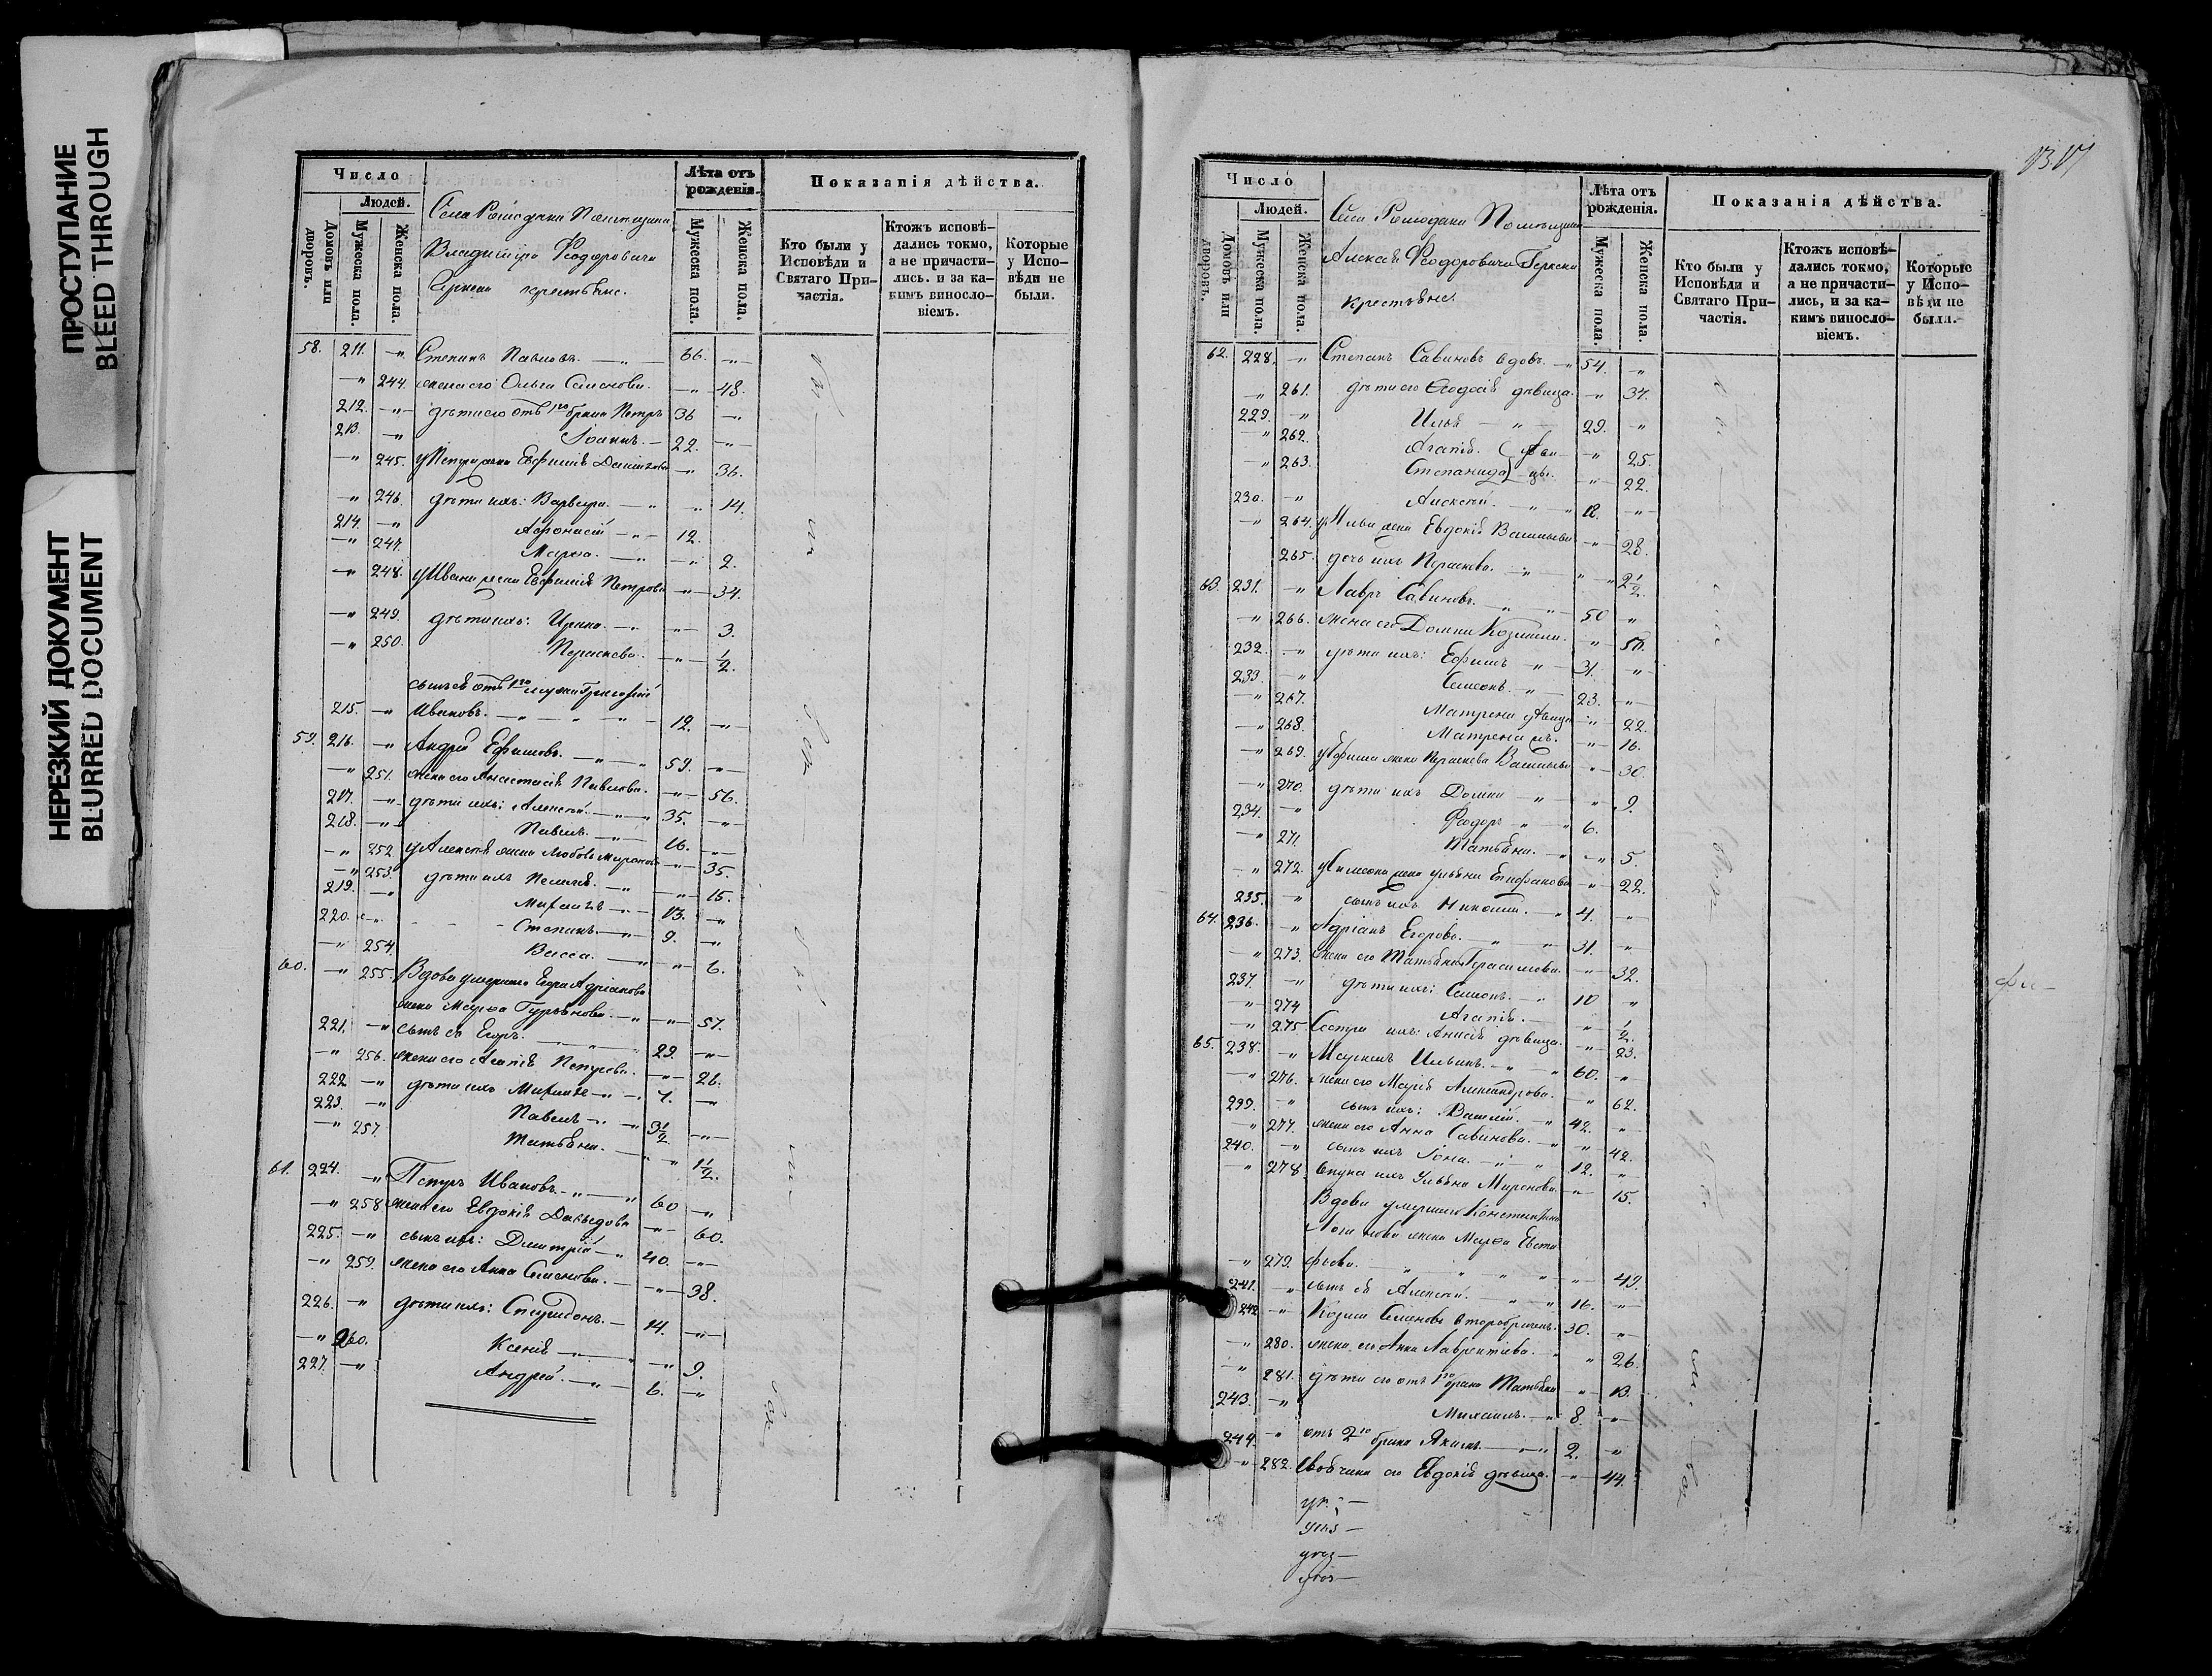 ПРОСТУПАНИЕ
BLEED THROUGH
НЕРЕЗКИЙ ДОКУМЕНТ
BLURRED DOCUMENT
Число
Людей.
Домовъ или дворовъ.
Мужеска пола.
Женска пола.
Села Ромодана Помѣщика
Владиміра Феодоровича
крестьяне.
Лѣта отъ рожденія.
Мужеска пола.
Женска пола.
Показанія дѣйства.
Кто были у Исповѣди и Святаго Причастія.
Ктожъ исповѣ-дались токмо, а не причасти-лись. и за ка-кимъ виносло-віемъ.
Которые у Испо-вѣди не были.
58. 211. -"- Степанъ Павловъ. -"- 66. -"-
-"- 244. жена его Ольга Семенова. -"- 48.
212. -"- дѣти его отъ 1го брака Петръ 36 -"-
213. -"- Іоаннъ. - 22. -"-
-"- 245. у Петра жена Евфимія -"- 36.
-"- 246. дѣти ихъ: Варвара. -"- 14.
214. -"- Афонасій -"- 12.
-"- 247. Марѳа. -"- 2.
-"- 248. у Ивана жена Евфимія Петрова -"- 34.
-"- 249. дѣти ихъ: Ирина. -"- 3.
-"- 250. Параскева. -"- 1/2.
сынъ ея отъ 1го мужа Григорій
215. -"- Ивановъ. -"- 12. -"-
59. 216. -"- Андрей Ефимовъ. -"- 59. -"-
-"- 251. жена его Анастасія Павлова. -"- 56.
217. -"- дѣти ихъ: Алексѣй. -"- 35. -"-
218. -"- Павелъ. -"- 16. -"-
-"- 252 у Алексѣя жена Любовь Миронова -"- 35.
-"- 253. дѣти ихъ Пелагея. -"- 15.
219. -"- Михаилъ -"- 13. -"-
220. -"- Степанъ -"- 9. -"-
-"- 254. Васса. -"- 6.
60. -"- 255. Вдова умершаго Егора Адріанова
жена Марѳа Гурьянова. -"- 57.
221. -"- сынъ ея Егоръ. -"- 29. -"-
-"- 256. жена его Агапія Петрова. -"- 26.
222 -"- дѣти ихъ Михаилъ -"- 7. -"-
223. -"- Павелъ -"- 3 1/2. -"-
-"- 257. Татьяна. -"- 1 1/2.
61. 224. -"- Петръ Ивановъ. -"- 60 -"-
-"- 258 жена его Евдокія Давыдова -"- 60.
225. -"- сынъ ихъ: Дмитрій -"- 40. -"-
-"- 259. жена его Анна Семенова. -"- 38.
226. -"- дѣти ихъ: Спиридонъ. - 14. -"-
-"- 260. Ксенія -"- 9.
227. -"- Андрей. -"- 6. -"-
Число
Людей.
Домовъ или дворовъ.
Мужеска пола.
Женска пола.
Села Ромодана Помѣщика
Алексѣя Феодоровича
крестьяне.
Лѣта отъ рожденія.
Мужеска пола.
Женска пола.
Показанія дѣйства.
Кто были у Исповѣди и Святаго При-частія.
Ктожъ исповѣ-дались токмо, а не причасти-лись, и за ка-кимъ виносло-віемъ.
Которые у Испо-вѣди не были.
62. 228. -"- Степанъ Савиновъ вдовъ. -"- 54. -"-
-"- 261. дѣти его Феодосія дѣвица. -"- 34.
229. -"- Илья -"- 29. -"-
-"- 262. Агапія. -"- 25.
-"- 263. Степанида -"- 22.
230. -"- Алексѣй. -"- 12. -"-
-"- 264. у Ильи жена Евдокія Васильева -"- 28.
265. дочь ихъ Параскева. -"- 2 1/2.
63. 231. -"- Лавръ Савиновъ. -"- 50 -"-
-"- 266. жена его Домна Козмина. -"- 50.
232. -"- дѣти ихъ: Ефимъ -"- 31. -"-
233. -"- Симеонъ. -"- 23. -"-
-"- 267. Матрена дѣвица -"- 22.
-"- 268. Матрена -"- 16.
-"- 269. у Ефима жена Параскева Васильева -"- 30.
-"- 270. дѣти ихъ Домна -"- 9.
234. -"- Ѳеодоръ -"- 6.
-"- 271 Татьяна. -"- 5.
-"- 272. у Симеона жена Ульяна Епифанова -"- 22.
235. -"- сынъ ихъ Николай. -"- 4. -"-
64. 236. -"- Адріанъ Егоровъ. -"- 31. -"-
-"- 273. жена его Татьяна Герасимова. -"- 32.
237. -"- дѣти ихъ: Семенъ. -"- 10 -"-
-"- 274 Агапія. - -"- 1/2.
-"- 275. Сестра ихъ: Анисія дѣвица. -"- 23.
65. 238. -"- Маркелъ Ильинъ. -"- 60. -"-
-"- 276. жена его Марія Александрова. -"- 62.
239. -"- сынъ ихъ: Василій. -"- 42. -"-
-"- 277. жена его Анна Савинова. -"- 42.
240. -"- сынъ ихъ Іона. -"- 12. -"-
-"- 278. внука ихъ Ульяна Миронова. -"- 15.
Вдова умершаго Константина
жена Марѳа Евста
-"- 279 фьева. -"- 49.
241. -"- сынъ ея Алексѣй. -"- 16. -"-
242. -"- Козма Семеновъ второбрачный. 30. -"-
-"- 280. жена его Анна Лаврентіева. -"- 26.
-"- 281. дѣти его отъ 1го брака Татьяна -"- 13.
243. -"- Михаилъ. -"- 8. -"-
244. -"- отъ 2го брака Якимъ. -"- 2. -"-
-"- 282. его Евдокія дѣвица. -"- 44.